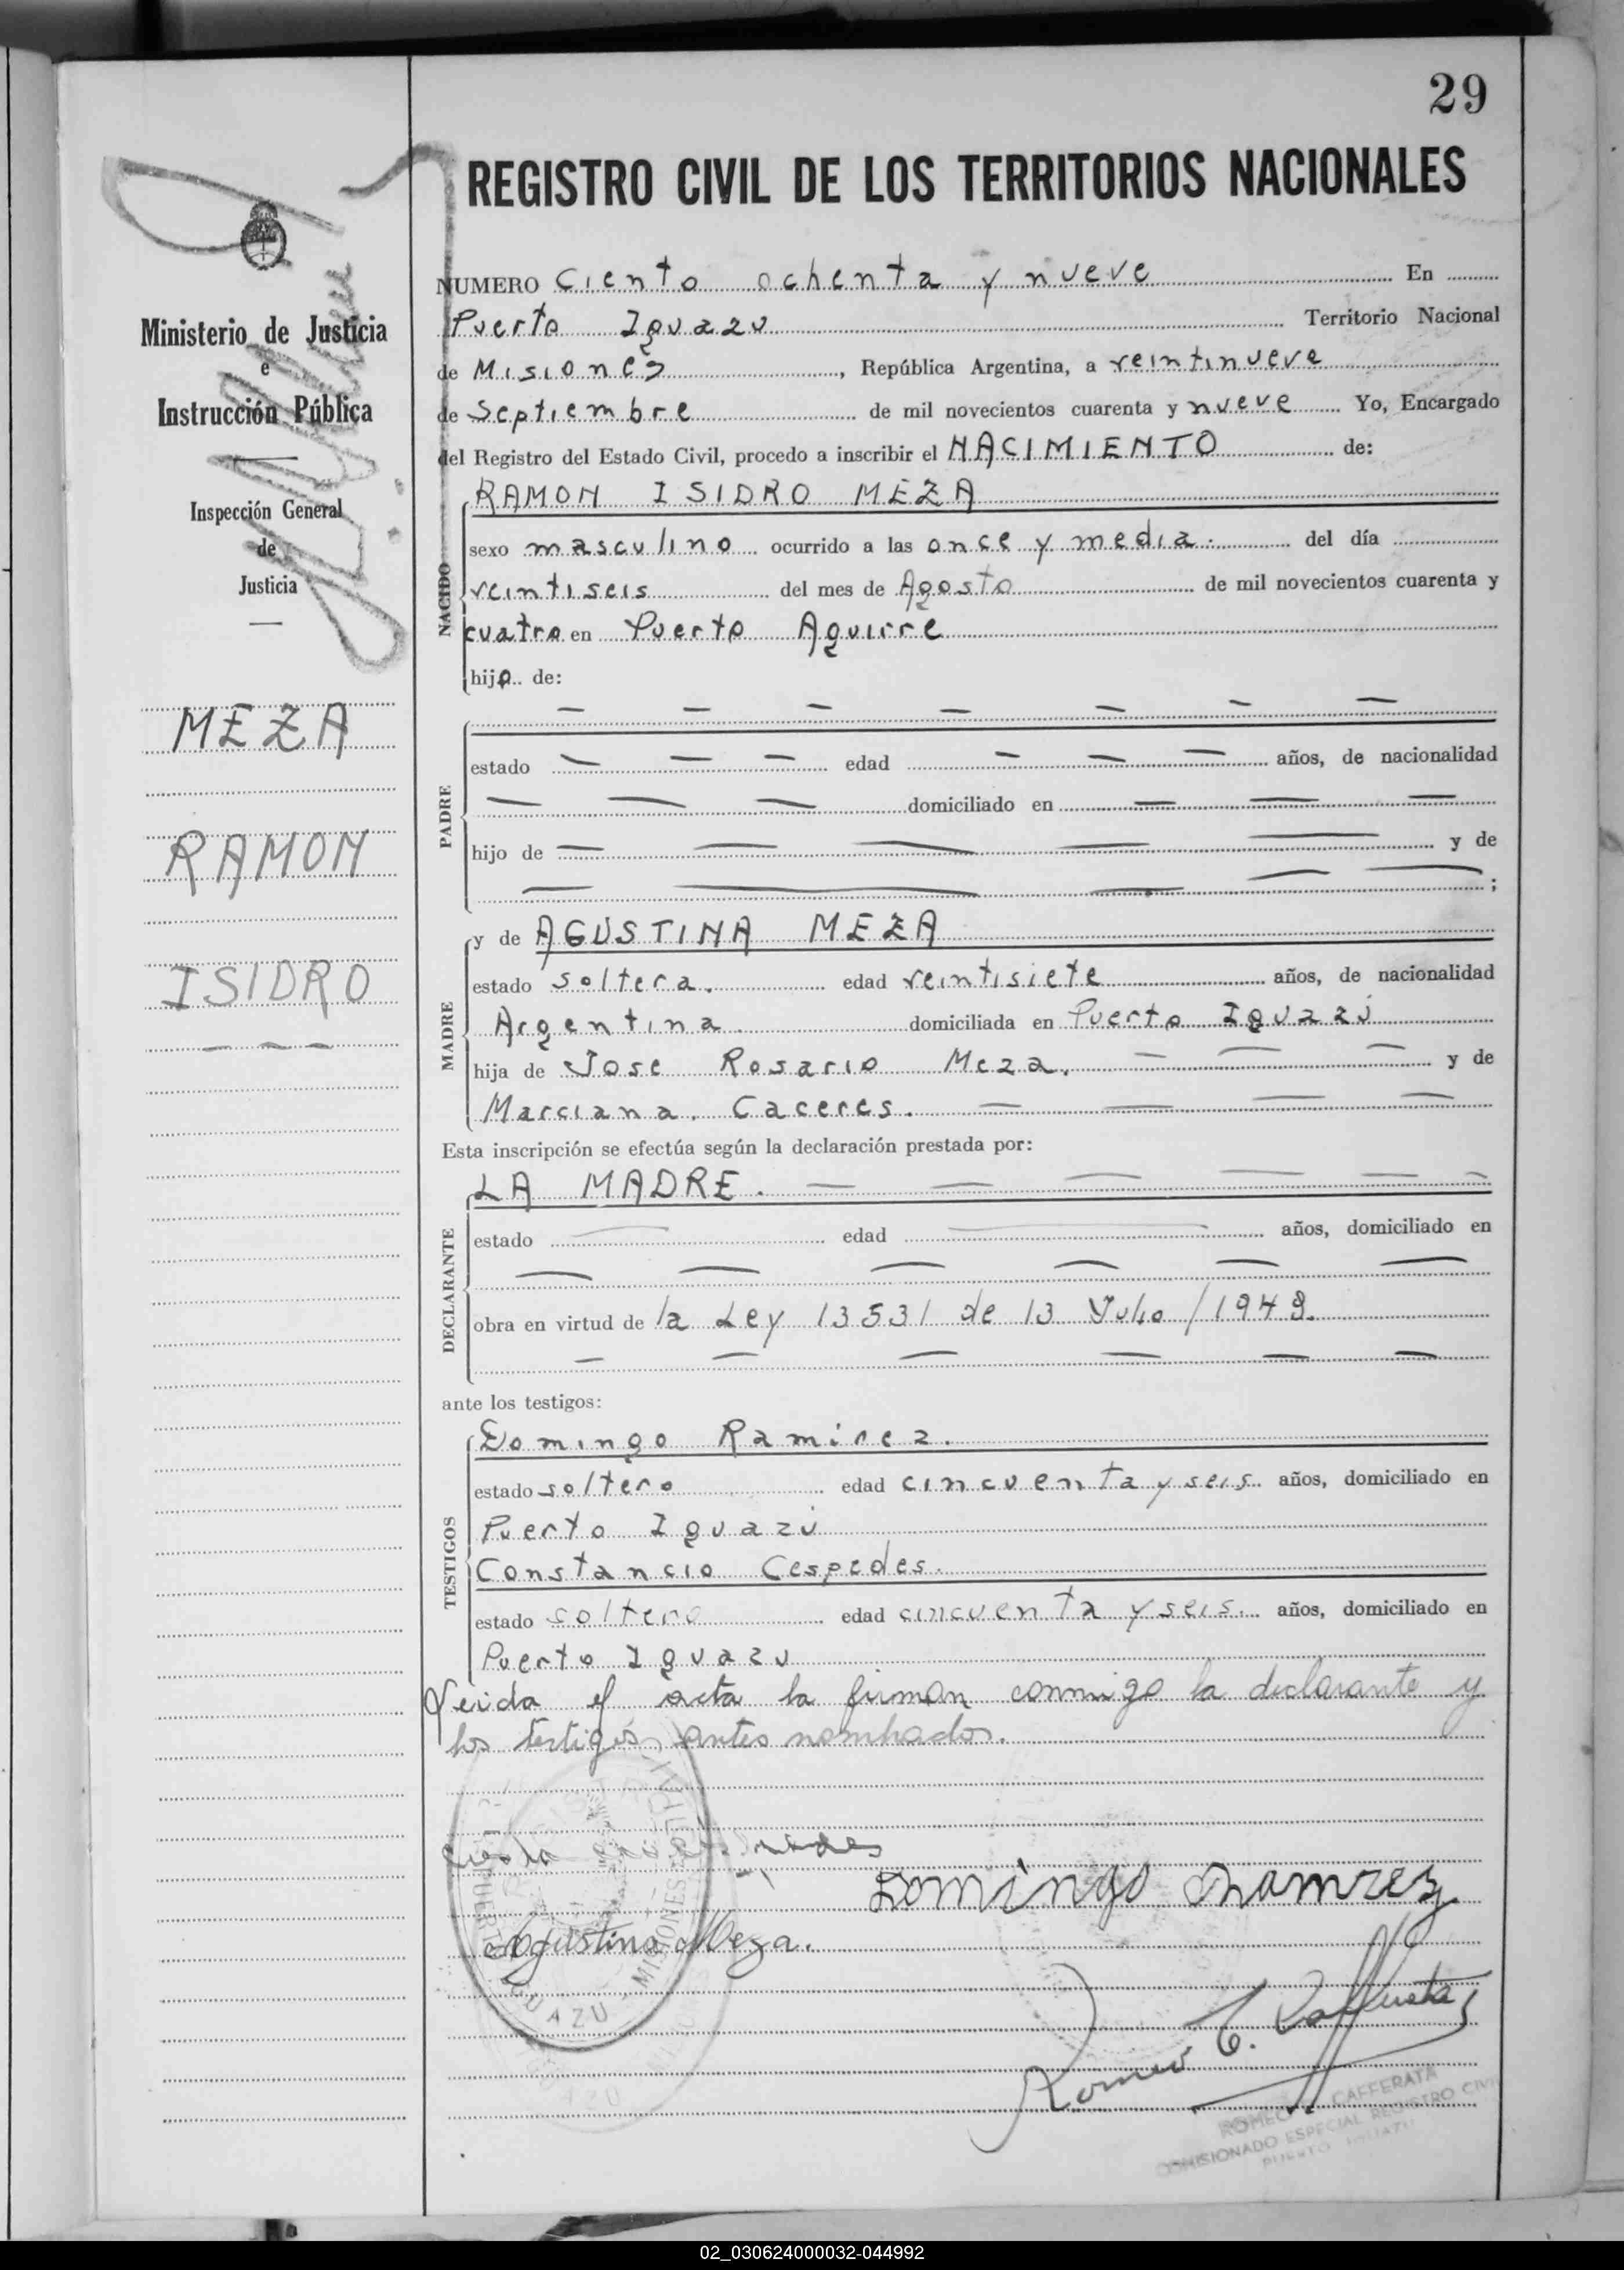 29
REGISTRO CIVIL DE LOS TERRITORIOS NACIONALES
Ministerio de Justicia
e
Instrucción Pública
Inspección General
de
Justicia
MEZA
RAMON
ISIDRO
NUMERO Ciento ochenta y nueve En
Puerto Iguazu Territorio Nacional
de Misiones, República Argentina, a veintinueve
de Septiembre de mil novecientos cuarenta y nueve Yo, Encargado
del Registro del Estado Civil, procedo a inscribir el NACIMIENTO de:
NACIDO
RAMON ISIDRO MEZA
sexo masculino ocurrido a las once y media. del día
veintiseis del mes de Agosto de mil novecientos cuarenta y
cuatro en Puerto Aguirre
hijo de:
PADRE
estado edad años, de nacionalidad
domiciliado en
hijo de y de
;
MADRE
y de AGUSTINA MEZA
estado soltera. edad veintisiete años, de nacionalidad
Argentina domiciliada en Puerto Iguazú
hija de Jose Rosario Meza. y de
Marciana. Caceres.
Esta inscripción se efectúa según la declaración prestada por:
DECLARANTE
LA MADRE.
estado edad años, domiciliado en
obra en virtud de la Ley 13531 de 13 Julio/1949.
ante los testigos:
TESTIGOS
Domingo Ramirez.
estado soltero edad cincuenta y seis años, domiciliado en
Puerto Iguazú
Constancio Cespedes.
estado soltero edad cincuenta y seis. años, domiciliado en
Puerto Iguazu
Leida el acta la firman conmigo la declarante y
los testigos antes nombrados.
Domingo Ramrez
Agustina Meza.
IGUAZU - MISIONES
Romeo C. Cafferata
ROMEO CAFFERATA
COMISIONADO ESPECIAL REGISTRO CIVIL
PUERTO IGUAZU
02_030624000032-044992